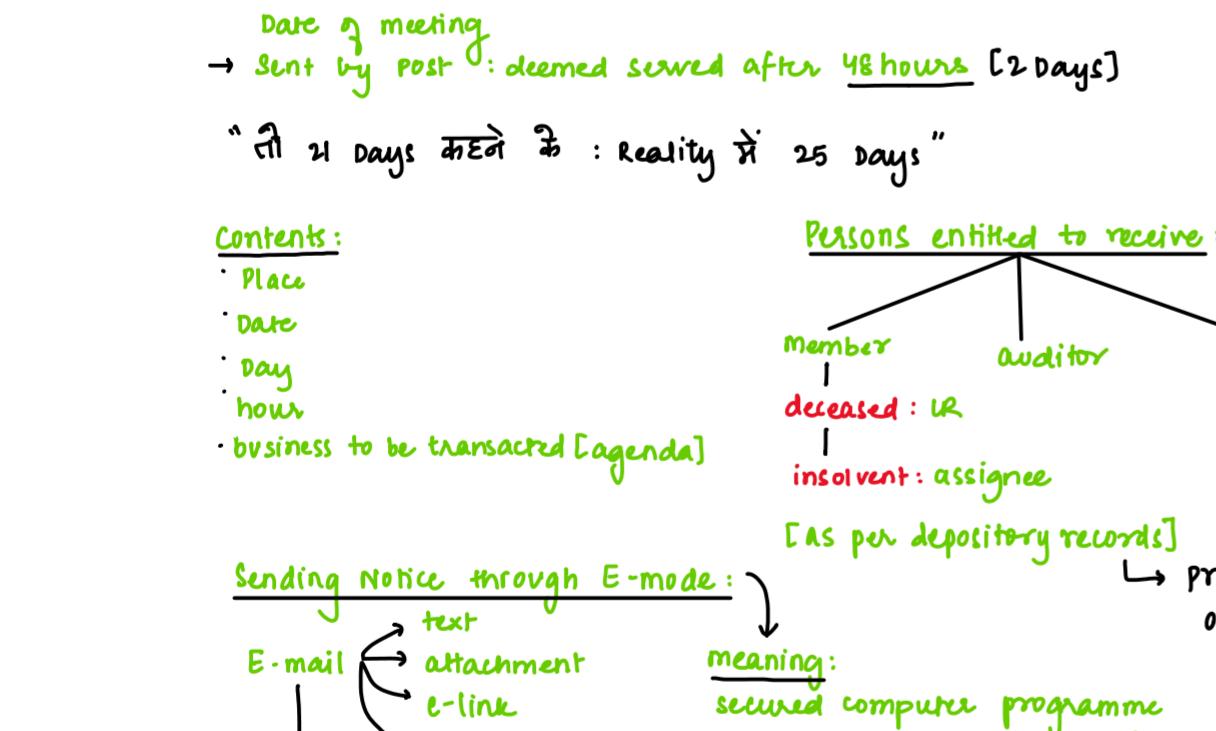 Date of meeting
→ Sent by post : deemed served after 48 hours [2 Days]
"तो 21 Days कहने के : Reality में 25 Days"
Contents :
· Place
· Date
· Day
· hour
· business to be transacted [agenda]
Persons entitled to receive :
member
auditor
deceased : LR
insolvent : assignee
[as per depository records]
Sending Notice through E-mode :
text
E-mail
attachment
e-link
meaning :
secured computer programme